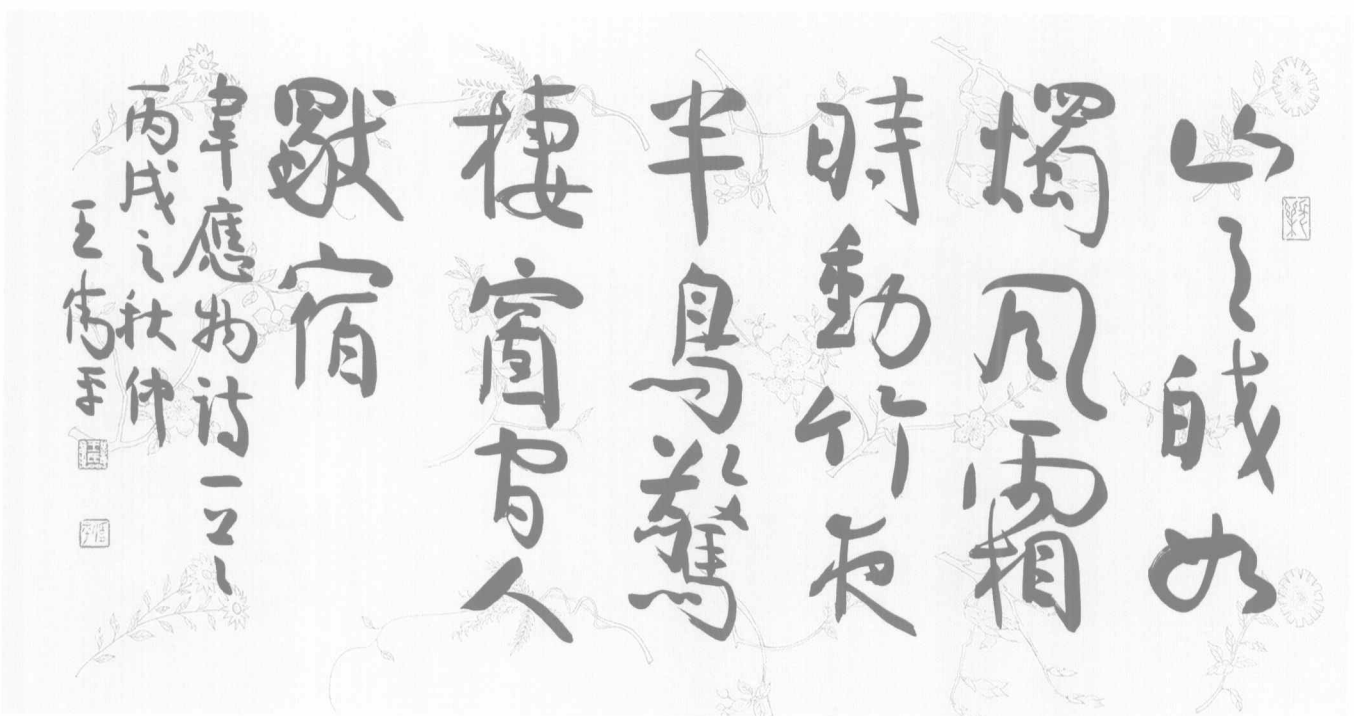 山月皎如
燭風霜
時動竹夜
半鳥驚
棲窗間人
獨宿
韋應物詩一首
丙戌之秋仲
王偉平